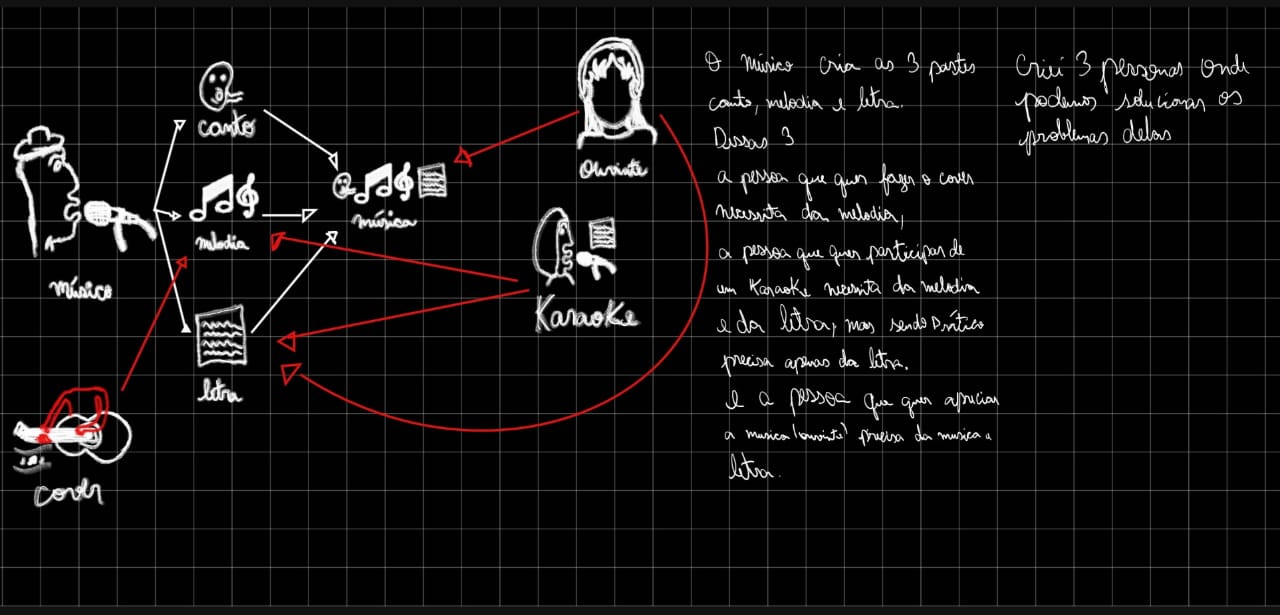 canto
melodia
letra
Músico
cover
música
Ouvinte
Karaoke
O músico cria as 3 partes
canto, melodia e letra.
Dessas 3
a pessoa que quer fazer o cover
necessita da melodia,
a pessoa que quer participar de
um Karaoke necessita da melodia
e da letra, mas sendo prático
precisa apenas da letra.
e a pessoa que quer apreciar
a musica (ouvinte) precisa da musica e
letra.
Criei 3 personas onde
podemos solucionar os
problemas delas